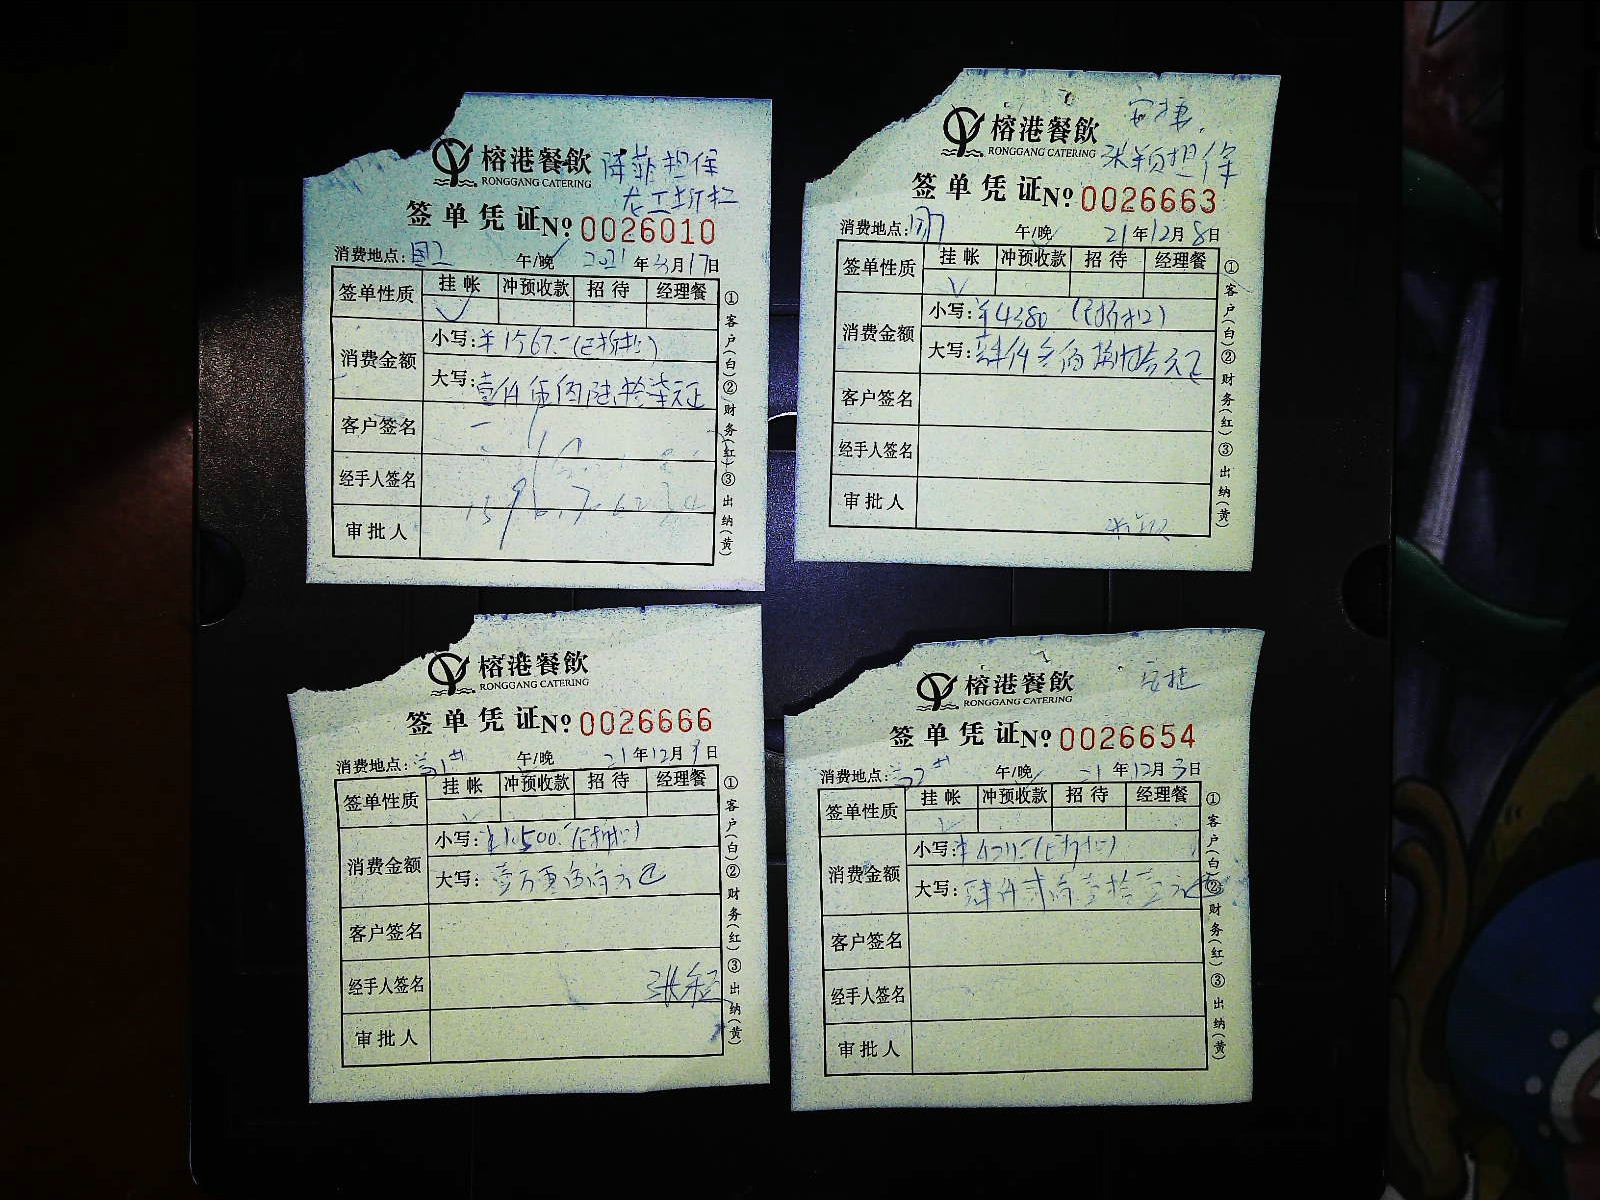 榕港餐飲 陈菲担保
RONGGANG CATERING
签单凭证 № 0026010
消费地点: 午/晚 2021年 月17日
签单性质 挂帐 冲预收款 招待 经理餐
消费金额
小写:¥1567.-(已折扣)
大写:壹仟伍佰陆拾柒元正
客户签名
经手人签名
审批人
①客户(白)②财务(红)③出纳(黄)
安捷
榕港餐飲 张颖担保
RONGGANG CATERING
签单凭证 № 0026663
消费地点: 午/晚 21年12月8日
签单性质 挂帐 冲预收款 招待 经理餐
消费金额
小写:¥4380 (已折扣)
大写:肆仟叁佰捌拾元正
客户签名
经手人签名
审批人
①客户(白)②财务(红)③出纳(黄)
榕港餐飲
RONGGANG CATERING
签单凭证 № 0026666
消费地点: 午/晚 21年12月9日
签单性质 挂帐 冲预收款 招待 经理餐
消费金额
小写: (已折扣)
大写:
客户签名
经手人签名
审批人
①客户(白)②财务(红)③出纳(黄)
榕港餐飲 安捷
RONGGANG CATERING
签单凭证 № 0026654
消费地点: 午/晚 21年12月3日
签单性质 挂帐 冲预收款 招待 经理餐
消费金额
小写:¥4211.-(已折扣)
大写:肆仟贰佰壹拾壹元
客户签名
经手人签名
审批人
①客户(白)②财务(红)③出纳(黄)